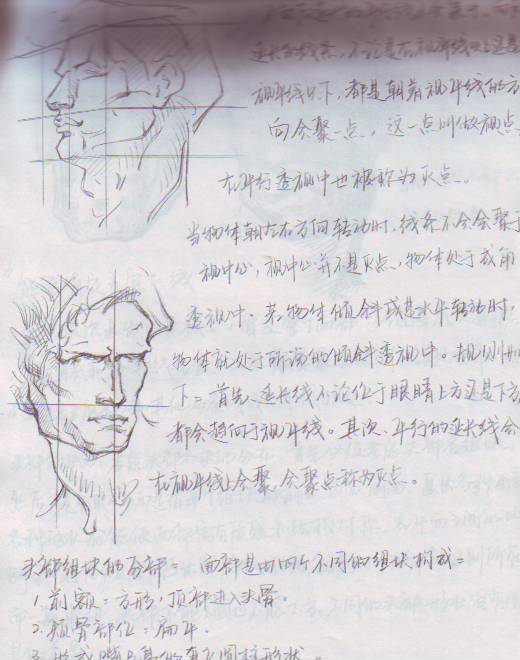 延长的线条，不论是在视平线以上还是
视平线以下，都是朝着视平线的方
向会聚一点，这一点叫做视点
在平行透视中也被称为灭点。
当物体朝左右方向转动时，线条不会会聚于
视中心，视中心并不是灭点，物体处于成角
透视中。若物体倾斜或是水平转动时，
物体就处于所谓的倾斜透视中。规则
下：首先、延长线不论位于眼睛上方还是下方
都会趋向于视平线。其次、平行的延长线会
在视平线上会聚，会聚点称为灭点。
头部组块的分部：面部是由四个不同的组块构成：
1.前额：方形，顶部进入头骨。
2.颊骨部位：扁平。